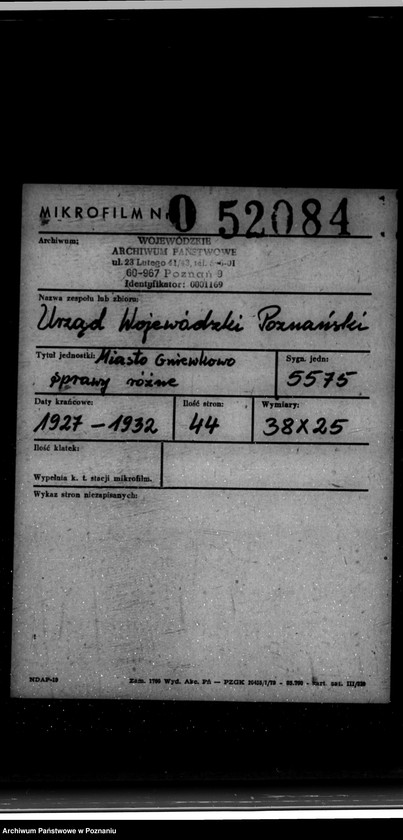 MIKROFILM Nr 0 52084
Archiwum:
WOJEWÓDZKIE
ARCHIWUM PAŃSTWOWE
ul. 23 Lutego 41/43, tel.
60-967 Poznań 9
Identyfikator: 0001169
Nazwa zespołu lub zbioru:
Urząd Wojewódzki Poznański
Tytuł jednostki: Miasto Gniewkowo
sprawy różne
Sygn. jedn:
5575
Daty krańcowe:
1927 – 1932
Ilość stron:
44
Wymiary:
38X25
Ilość klatek:
Wypełnia k. t. stacji mikrofilm.
Wykaz stron niezapisanych:
NDAP-19
Zam. 1790 Wyd. Akc. Pń — PZGK
Archiwum Państwowe w Poznaniu